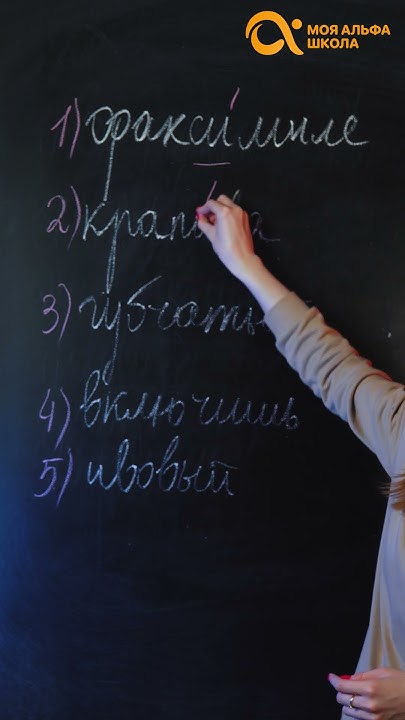 МОЯ АЛЬФА
ШКОЛА
1) факси́миле
2)
3)
4) включишь
5) ивовый